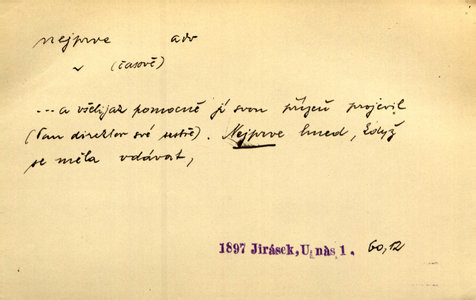 nejprve adv
(časově)
... a všelijak pomocně jí svou přízeň projevil
(Pan direktor své sestře). Nejprve hned, když
se měla vdávat,
1897 Jirásek, U nás 1. 60,12